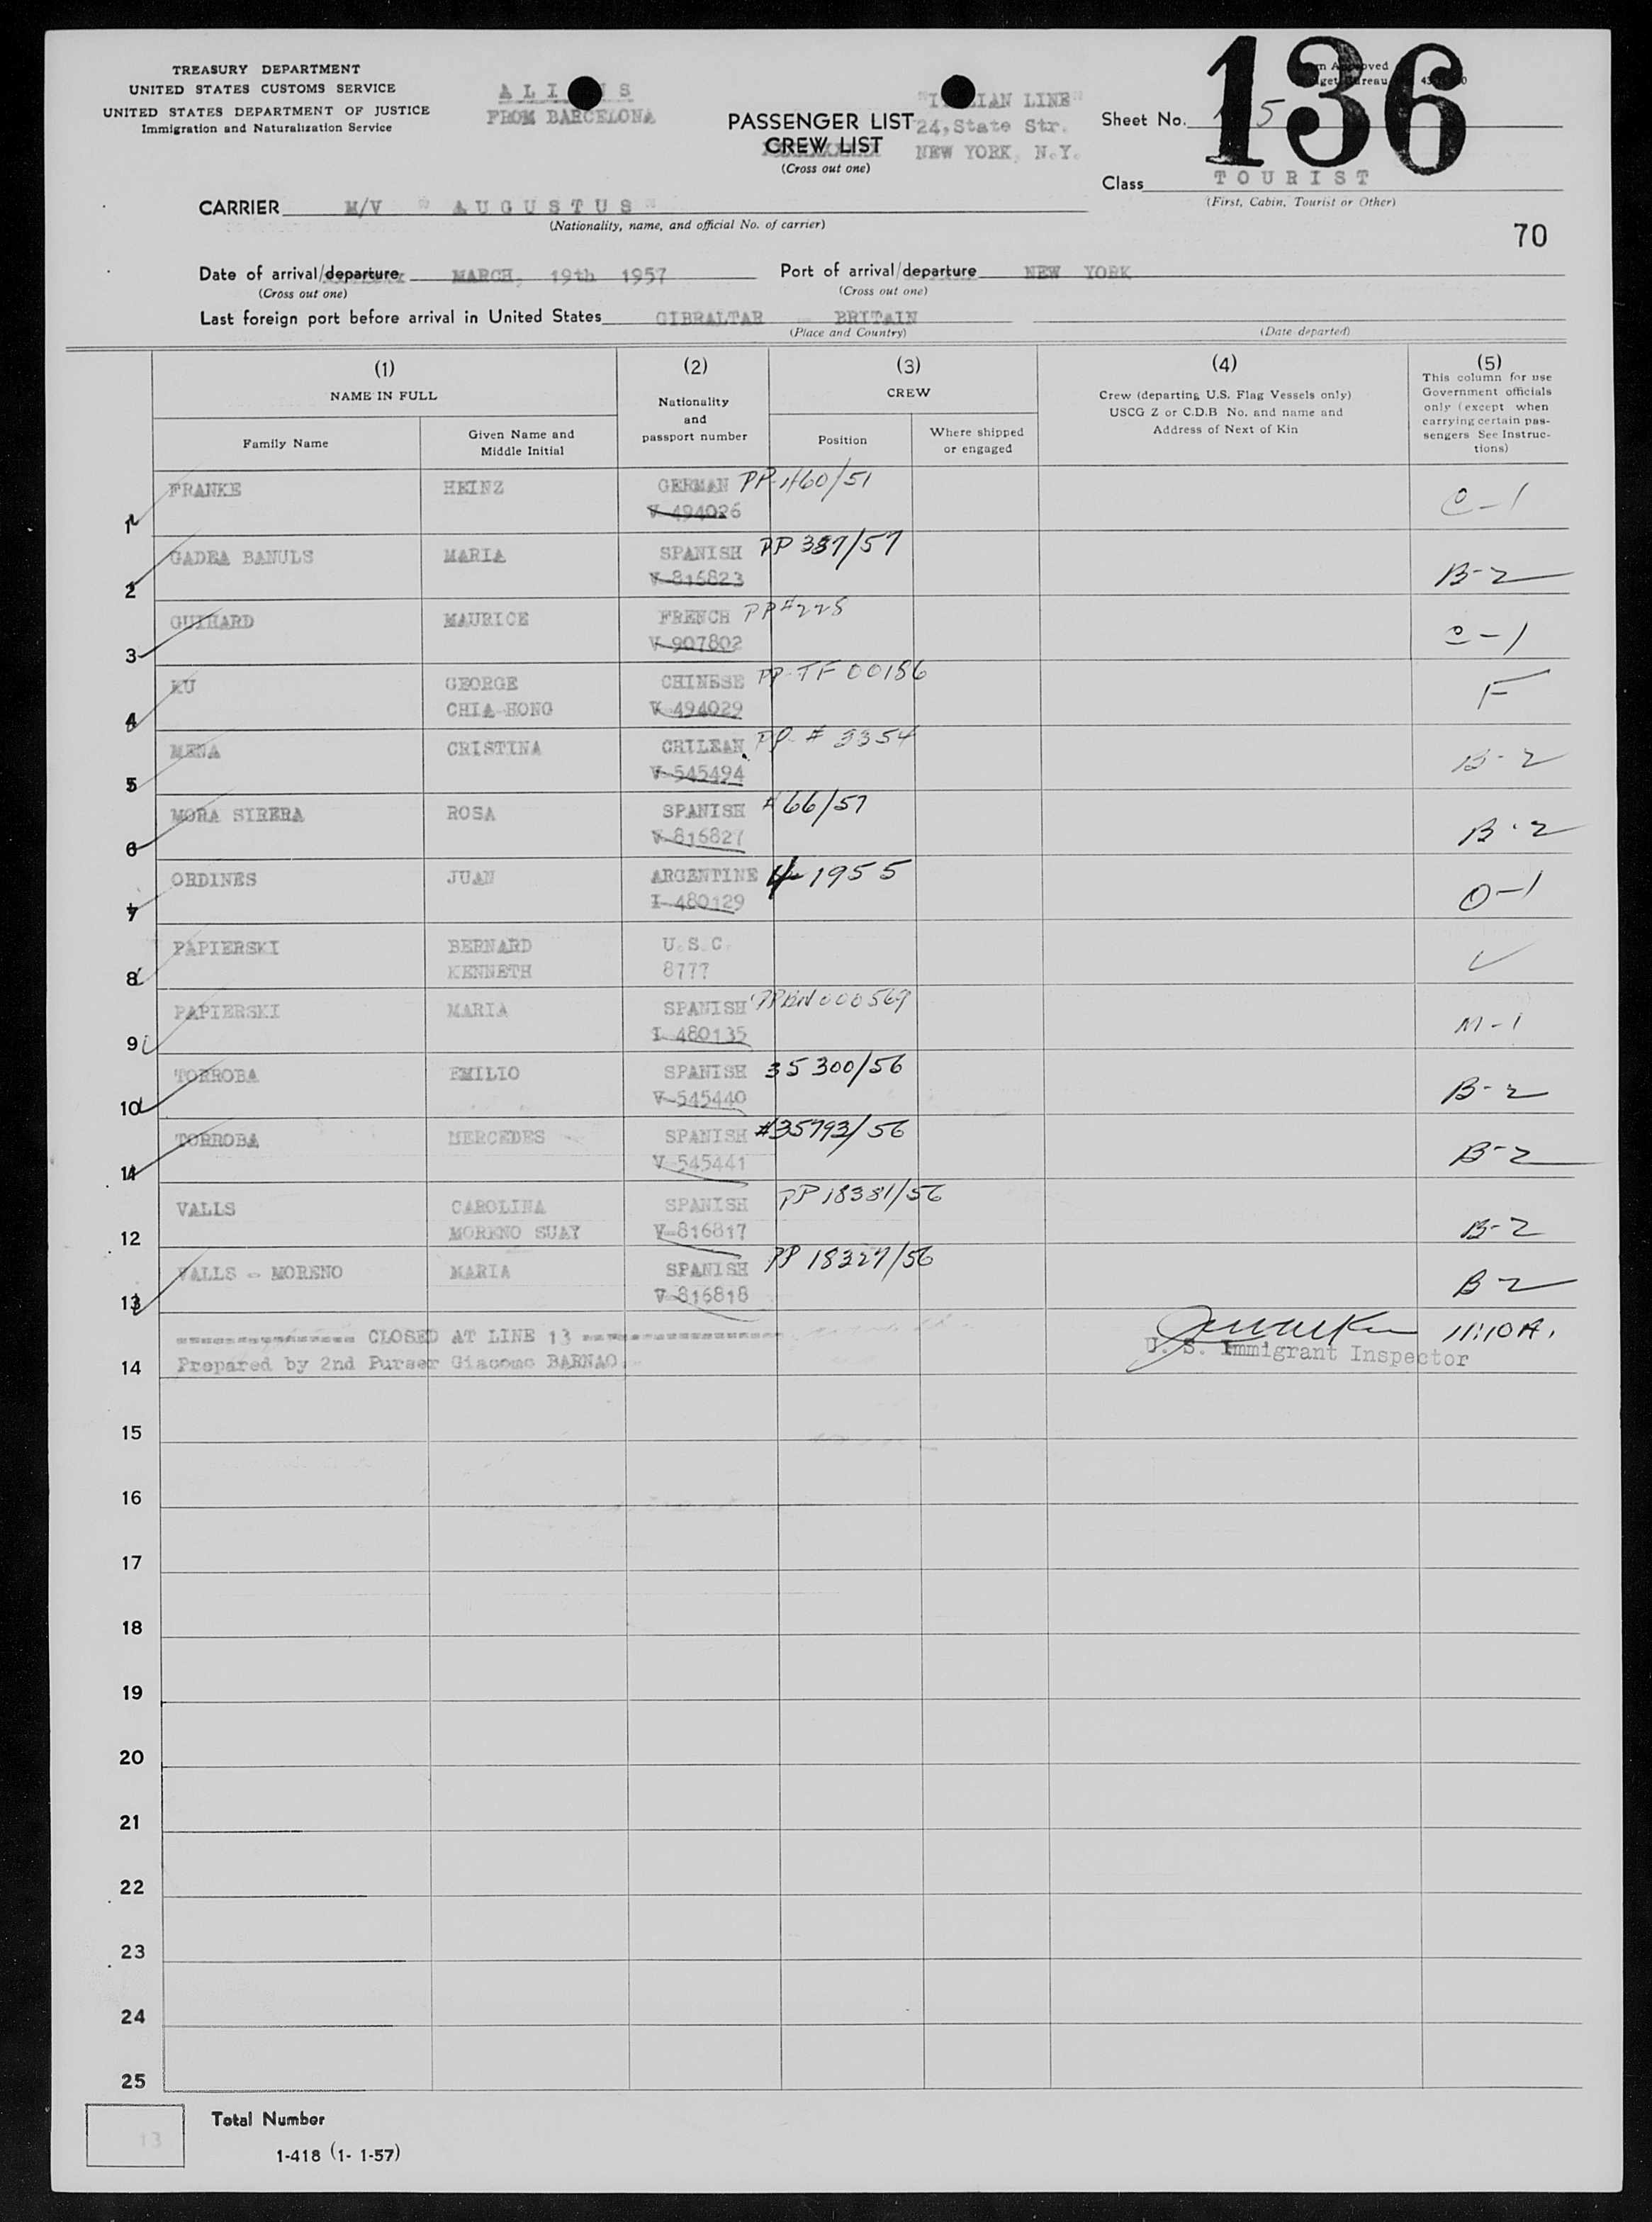 TREASURY DEPARTMENT
UNITED STATES CUSTOMS SERVICE
UNITED STATES DEPARTMENT OF JUSTICE
Immigration and Naturalization Service
ALI S
FROM BARCELONA
PASSENGER LIST
CREW LIST
(Cross out one)
"I LIAN LINE"
24, State Str.
NEW YORK, N.Y.
Sheet No. 5
136
Class TOURIST
(First, Cabin, Tourist or Other)
CARRIER M/V " AUGUSTUS"
(Nationality, name, and official No. of carrier)
70
Date of arrival/departure MARCH, 19th 1957 Port of arrival/departure NEW YORK
(Cross out one) (Cross out one)
Last foreign port before arrival in United States GIBRALTAR - BRITAIN
(Place and Country) (Date departed)
(1) (2) (3) (4) (5)
NAME IN FULL
Family Name
Given Name and
Middle Initial
Nationality
and
passport number
CREW
Position
Where shipped
or engaged
Crew (departing U.S. Flag Vessels only)
USCG Z or C.D.B No. and name and
Address of Next of Kin
This column for use
Government officials
only (except when
carrying certain pas-
sengers See Instruc-
tions)
FRANKE HEINZ GERMAN PP 1160/51
1 V-494026
GADEA BANULS MARIA SPANISH PP 387/57
2 V-816823 B-2
GUIHARD MAURICE FRENCH PP#225
3 V-907802
KU GEORGE CHINESE PP-TF 00186 F
4 CHIA-HONG V-494029
MENA CRISTINA CHILEAN PP # 3354
5 V-545494 B-2
MORA SIRERA ROSA SPANISH #66/57
6 V-816827 B-2
ORDINES JUAN ARGENTINE 1955
7 I-480129 O-1
PAPIERSKI BERNARD U.S.C.
8 KENNETH 8777
PAPIERSKI MARIA SPANISH 000569
9 I-480135 M-1
TORROBA EMILIO SPANISH 35300/56
10 V-545440 B-2
TORROBA MERCEDES SPANISH #35793/56
11 V-545441 B-2
VALLS CAROLINA SPANISH PP 18381/56
12 MORENO SUAY V-816817 B-2
VALLS - MORENO MARIA SPANISH PP 18327/56
13 V-816818 B-2
CLOSED AT LINE 13 11:10 A.
14 Prepared by 2nd Purser Giacomo BARNAO. U. S. Immigrant Inspector
15
16
17
18
19
20
21
22
23
24
25
13
Total Number
1-418 (1- 1-57)